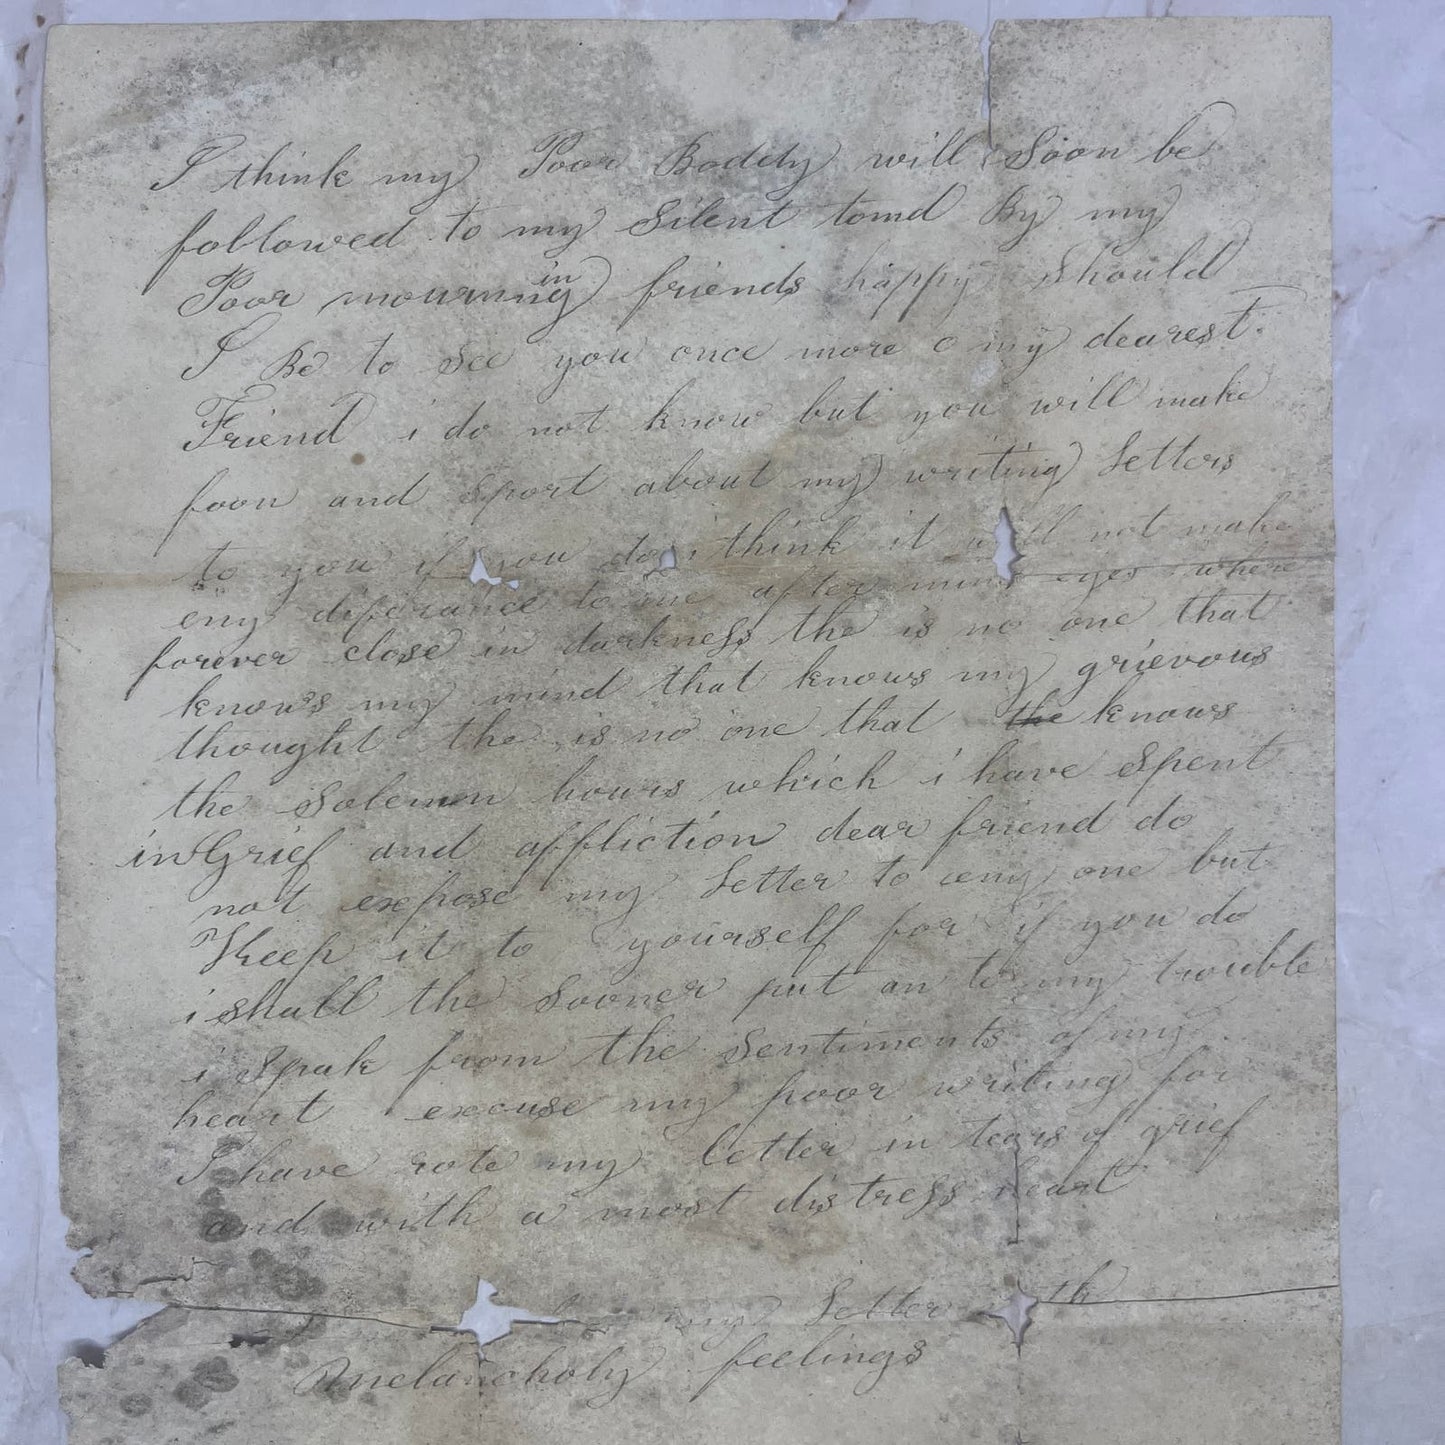 I think my Poor Boddy will Soon be
followed to my Silent tomd By my
Poor mourning friends happy should
in
I Be to See you once more o my dearest
Friend i do not know but you will make
foon and Sport about my writing Letters
to you if you do i think it will not make
eny diferance to me after mine eyes where
forever close in darkness the is no one that
knows my mind that knows my grievous
thought the is no one that the knows
the Solemn hours which i have Spent
in Grief and affliction dear friend do
not expose my Letter to eny one but
Keep it to yourself for if you do
i shall the Sooner put an to my trouble
i Speak from the Sentiments of my
heart excuse my poor writing for
I have rote my letter in tears of grief
and with a most distress heart
my Letter
Melancholy feelings